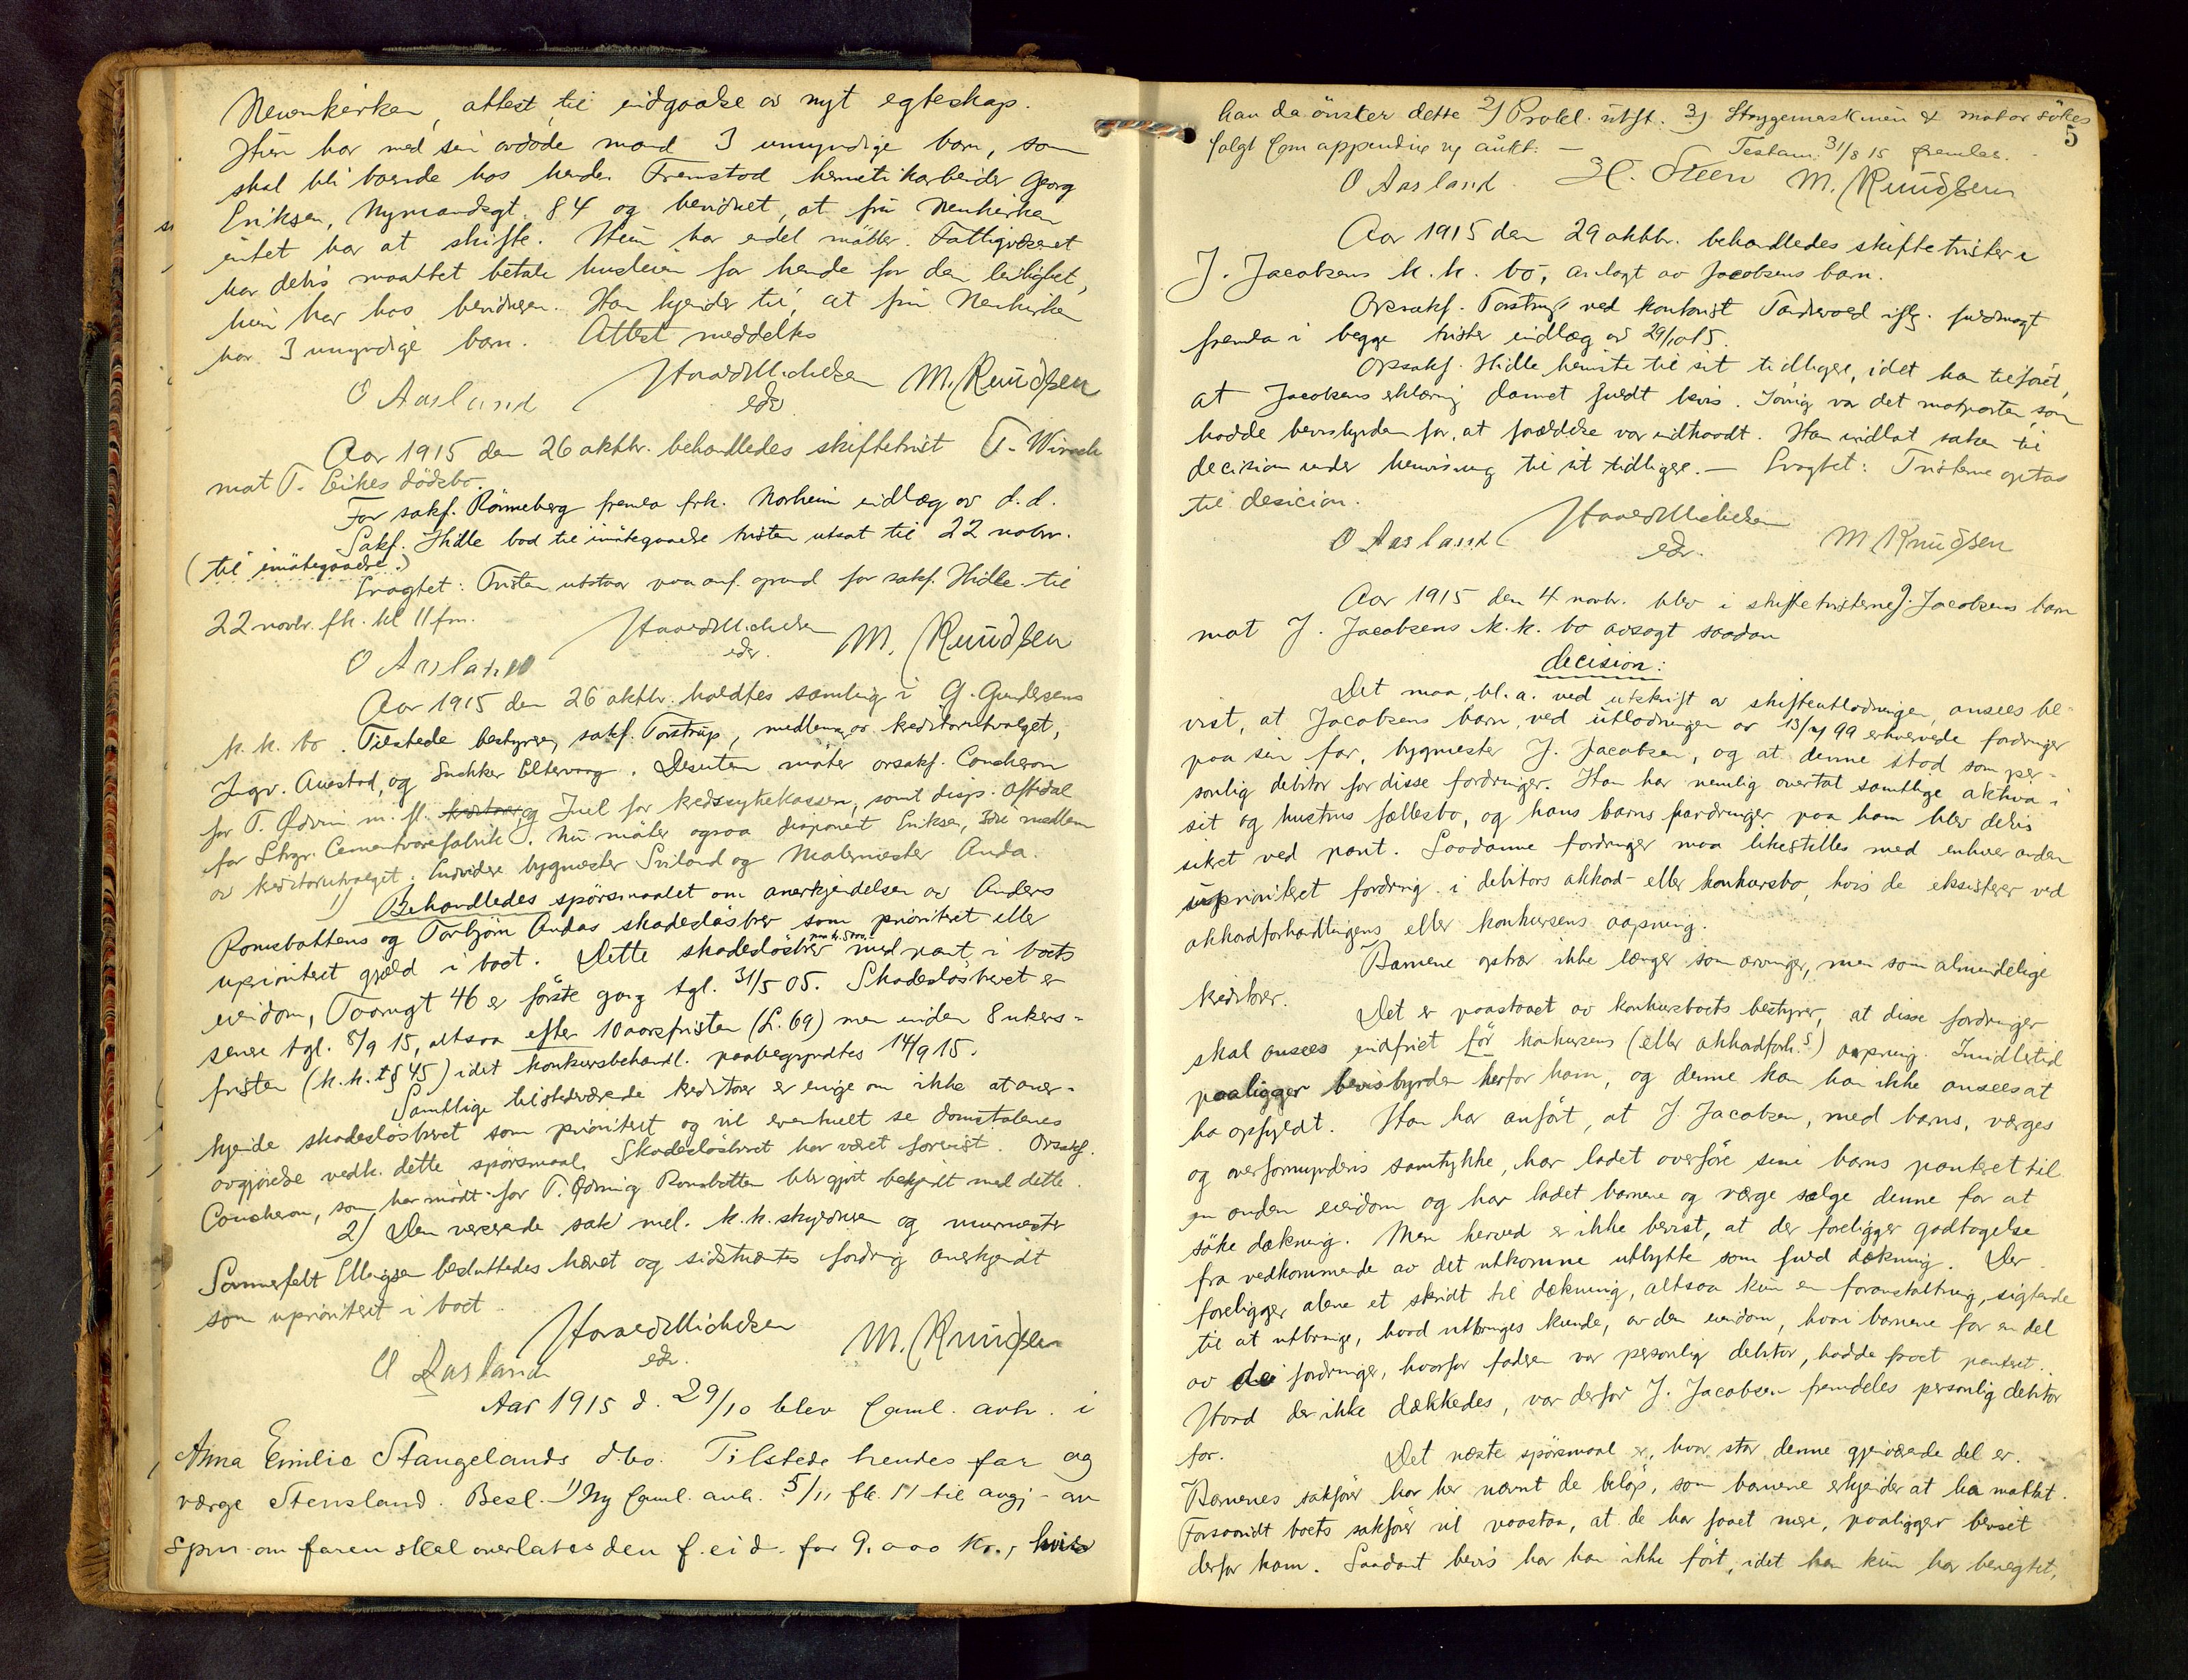 Neuenkirken, attest til indgaaelse av nyt egteskap.
Hun har med sin avdöde mand 3 umyndige barn, som
skal bli boende hos hende. Fremstod hermetikarbeider Georg
Eriksen, Nymandsgt. 84 og bevidnet, at fru Neukirken
intet har at skifte. Hun har endel möbler. Fattigvæsenet
har delvis maattet betale husleien for hende for den leilighet,
hun har hos bevidneren. Han kjender til, at fru Neukirken
har 3 umyndige barn. Attest meddeltes
O Aasland Harald Michelsen M. Knudsen
edv.
Aar 1915 den 26 oktbr. behandledes skiftetvist T. Winsch
mot T. Eikes dödsbo.
For sakf. Rönneberg fremla frk. Norheim indlæg av d. d.
Sakf. Hidle bad til imötegaaelse tvisten utsat til 22 novbr.
(til imötegaaelse.)
Eragtet: Tvisten utstaar paa anf. grund for sakf. Hidle til
22 novbr. fk. kl 11 fm.
O Aasland Harald Michelsen M. Knudsen
edv.
Aar 1915 den 26 oktbr. holdtes samling i G. Gundersens
k. k. bo. Tilstede bestyreren, sakf. Torstrup, medlemmer av kreditorutvalget,
Ingv. Auestad, og Snekker Eltervaag. Desuten möter orsakf. Coucheron
for T. Ödven m. fl. og Juel for kredssykekassen, samt disp. Oftedal
for Stvgr. Cementvarefabrik. Nu möter ogsaa disponent Eriksen, 3die medlem
av kreditorutvalget. Endvidere bygmester Sviland og Malermester Anda.
1) Behandledes spörsmaalet om anerkjendelsen av Anders
Romsbottens og Torbjörn Andas skadeslösbrev som prioritert eller
uprioritert gjæld i boet. Dette skadeslösbrev paa kr. 5000 med pant i boets
eiendom, Taarngt 46 er förste gang tgl. 31/5 05. Skadeslösbrevet er
senere tgl. 8/9 15, altsaa efter 10 aarsfristen (L. 69) men inden 8 ukers-
fristen (k. k. l § 45) idet konkursbehandl. paabegyndtes 14/9 15.
Samtlige tilstedeværende kreditorer er enige om ikke at aner-
kjende skadeslösbrevet som prioritert og vil eventuelt se domstolenes
avgjörelse vedk. dette spörsmaal. Skadeslösbrevet har været forevist. Orsakf.
Coucheron, som har mödt for T. Ödven og Romsbotten blev gjort bekjendt med dette.
2) Den verserende sak mel. k. k. skyldneren og murmester
Sömmerfelt Ellingsen besluttedes hævet og sidstnævntes fordring anerkjendt
som uprioritert i boet.
O Aasland Harald Michelsen M. Knudsen
edv.
Aar 1915 d. 29/10 blev saml. avh. i
Anna Emilie Stangelands d.bo. Tilstede hendes far og
værge Stensland. Besl. 1) Ny saml. anh. 5/11 fk. 11 til avgj. av
spm. om faren skal overlates den f. eid. for 9.000 kr., hvis
5
han da önsker dette 2) Prokl. utst. 3) Strygemaskinen & motor sökes
solgt som appendix og aukt. —
Testam. 31/8 15 fremlas.
O Aasland H. Steen M. Knudsen
Aar 1915 den 29 oktbr. behandledes skiftetvister i
J. Jacobsens k. k. bo, anlagt av Jacobsens barn.
Orsakf. Torstrup ved kontorist Tardevold iflg. fuldmagt
fremla i begge tvister indlæg av 29/10 15.
Orsakf. Hidle henviste til sit tidligere, idet han tilföiet,
at Jacobsens erklæring dannet fuldt bevis. Iövrig var det motparten, som
hadde bevisbyrden for, at forældelse var indtraadt. Han indlot saken til
decision under henvisning til sit tidligere. — Eragtet: Tvisterne optas
til desicion.
O Aasland Harald Michelsen M Knudsen
edv.
Aar 1915 den 4 novbr. blev i skiftetvisterne J. Jacobsens barn
mot J. Jacobsens k. k. bo avsagt saadan
decision:
Det maa, bl. a. ved utskrift av skifteutlodningen, ansees be-
vist, at Jacobsens barn, ved utlodningen av 13/4 99 erhvervede fordringer
paa sin far, bygmester J. Jacobsen, og at denne stod som per-
sonlig debitor for disse fordringer. Han har nemlig overtat samtlige aktiva i
sit og hustrus fællesbo, og hans barns fordringer paa ham blev delvis
sikret ved pant. Saadanne fordringer maa likestilles med enhver anden
uprioritert fordring i debitors akkord- eller konkursbo, hvis de eksisterer ved
akkordforhandlingens eller konkursens aapning.
Barnene optrær ikke længer som arvinger, men som almindelige
kreditorer.
Det er paastaaet av konkursboets bestyrer, at disse fordringer
skal ansees indfriet för konkursens (eller akkordforh.s) aapning. Imidlertid
paaligger bevisbyrden herfor ham, og denne kan han ikke ansees at
ha opfyldt. Han har anfört, at J. Jacobsen, med barns, værges
og overformynderis samtykke, har ladet overföre sine barns panteret til
en anden eiendom og har ladet barnene og værge sælge denne for at
söke dækning. Men herved er ikke bevist, at der foreligger godtagelse
fra vedkommende av det utkomne utbytte som fuld dækning. Der
foreligger alene et skridt til dækning, altsaa kun en foranstaltning, sigtende
til at utbringe, hvad utbringes kunde, av den eiendom, hvori barnene for en del
av de fordringer, hvorfor faderen var personlig debitor, hadde faaet panteret.
Hvad der ikke dækkedes, var derfor J. Jacobsen fremdeles personlig debitor
for.
Det næste spörsmaal er, hvor stor denne gjenværende del er.
Barnenes sakförer har her nævnt de belöp, som barnene erkjender at ha mottat.
Forsaavidt boets sakförer vil paastaa, at de har faaet mere, paaligger beviset
derfor ham. Saadant bevis har han ikke fört, idet han kun har benegtet,